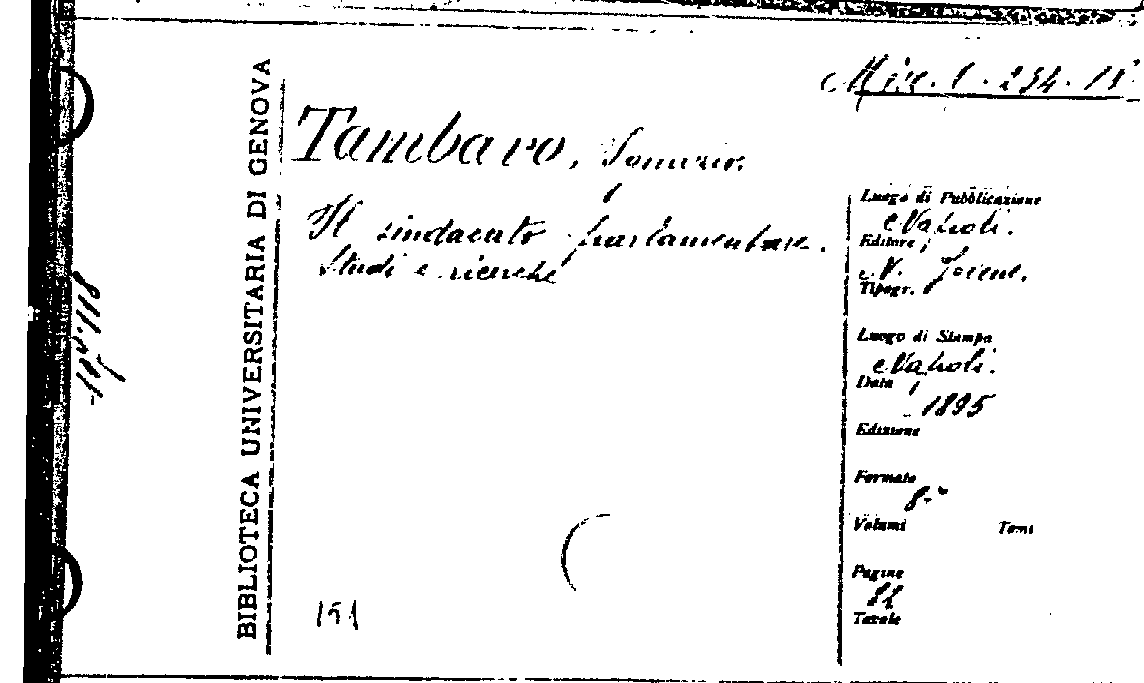 Misc. C. 234. 15
BIBLIOTECA UNIVERSITARIA DI GENOVA
Tambaro,
Il sindacato parlamentare.
Studi e ricerche
Luogo di Pubblicazione
Napoli.
Editore
N. Jovene.
Tipogr.
Luogo di Stampa
Napoli.
Data
1895
Edizione
Formato
8°
Volumi Tomi
Pagine
Tavole
151